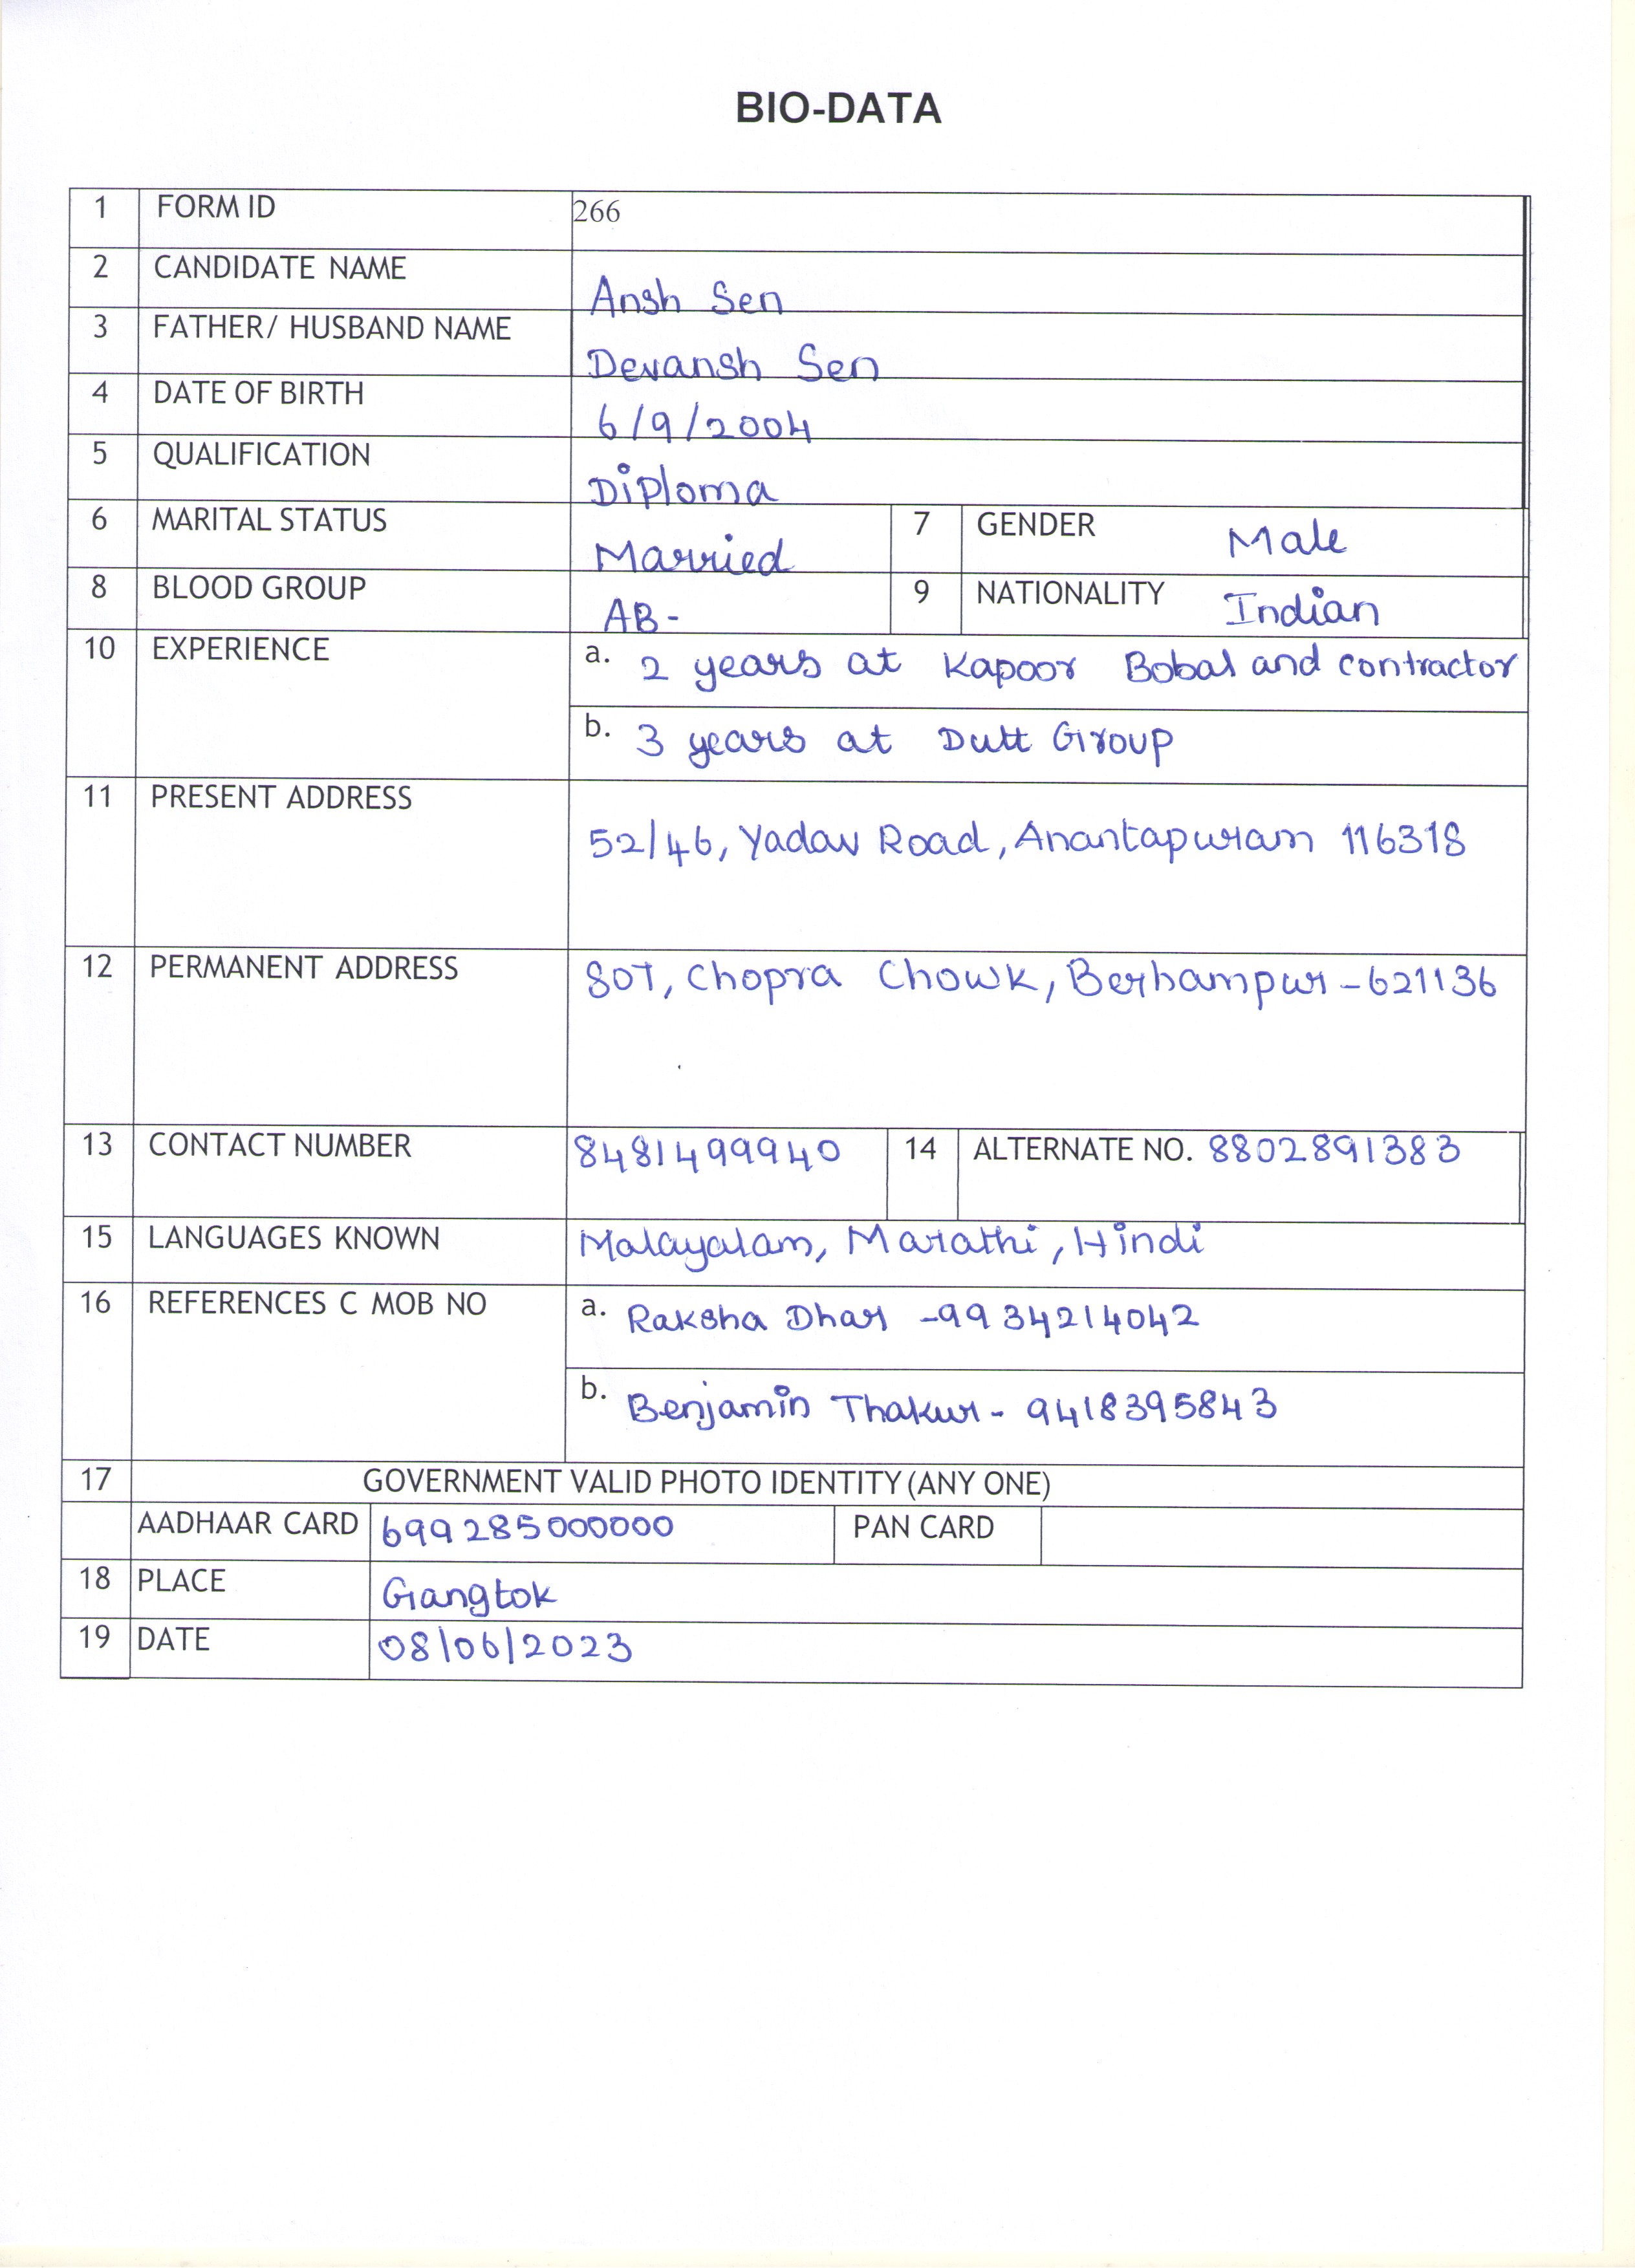 BIO-DATA
1 FORM ID 266
2 CANDIDATE NAME Ansh Sen
3 FATHER/ HUSBAND NAME Devansh Sen
4 DATE OF BIRTH 6/9/2004
5 QUALIFICATION Diploma
6 MARITAL STATUS Married 7 GENDER Male
8 BLOOD GROUP AB- 9 NATIONALITY Indian
10 EXPERIENCE a. 2 years at Kapoor Bobal and contractor
b. 3 years at Dutt Group
11 PRESENT ADDRESS 52/46, Yadav Road, Anantapuram 116318
12 PERMANENT ADDRESS 807, Chopra Chowk, Berhampur-621136
13 CONTACT NUMBER 8481499940 14 ALTERNATE NO. 8802891383
15 LANGUAGES KNOWN Malayalam, Marathi, Hindi
16 REFERENCES C MOB NO a. Raksha Dhar -9934214042
b. Benjamin Thakur- 9418395843
17 GOVERNMENT VALID PHOTO IDENTITY (ANY ONE)
AADHAAR CARD 699285000000 PAN CARD
18 PLACE Gangtok
19 DATE 08/06/2023